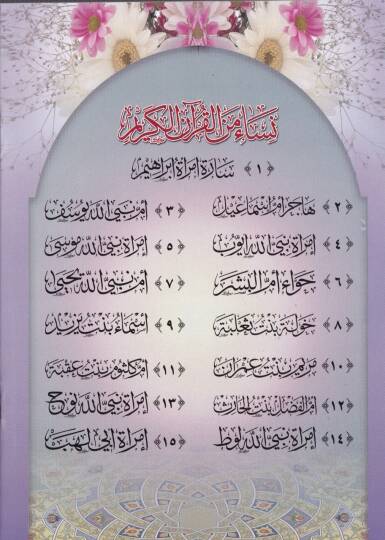 نساء من القرآن الكريم
﴿١﴾ سارة امرأة ابراهيم
﴿٢﴾ هاجر أم اسماعيل ﴿٣﴾ أم نبي الله يوسف
﴿٤﴾ امرأة نبي الله أيوب ﴿٥﴾ امرأة نبي الله موسى
﴿٦﴾ حواء أم البشر ﴿٧﴾ أم نبي الله يحيى
﴿٨﴾ خولة بنت ثعلبة ﴿٩﴾ أسماء بنت يزيد
﴿١٠﴾ مريم بنت عمران ﴿١١﴾ أم كلثوم بنت عقبة
﴿١٢﴾ أم الفضل بنت الحارث ﴿١٣﴾ امرأة نبي الله نوح
﴿١٤﴾ امرأة نبي الله لوط ﴿١٥﴾ امرأة أبي لهب